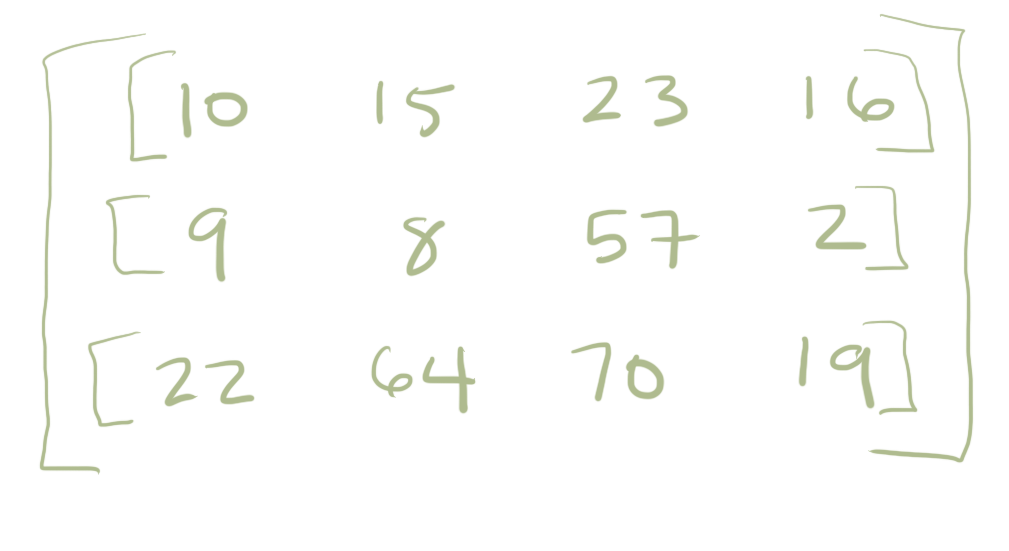 [[10 15 23 16]
[9 8 57 2]
[22 64 70 19]]